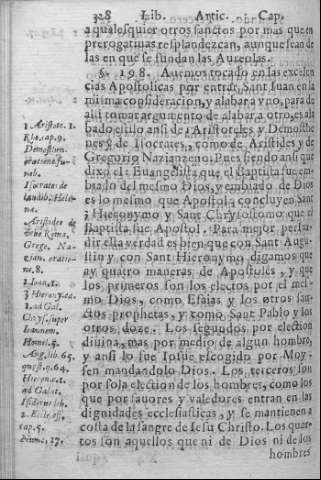 328 Lib. Antic. Cap.
a qualesquier otros sanctos por mas que en
prerogatiuas resplandezcan, aunque sean de
las en que se fundan las Aureolas.
§. 198. Auemos tocado en las excelen
cias Apostolicas por entrar Sant Iuan en la
misma consideracion, y alabar a vno, para de
alli tomar argumento de alabar a otro, es ala
bado estilo ansi de Aristoteles y Demosthe
nes y de Isocrates, como de Aristides y de
Gregorio Nazianzeno. Pues siendo ansi que
dixo el Euangelista que el Baptista fue em-
biado del mesmo Dios, y embiado de Dios
es lo mesmo que Apostol, concluyen Sant
Hieronymo y Sant Chrysostomo que el
Baptista fue Apostol. Para mejor persua-
dir esta verdad es bien que con Sant Augu-
stin y con Sant Hieronymo digamos que
ay quatro maneras de Apostoles, y que
los primeros son los electos por el mes-
mo Dios, como Esaias y los otros san-
ctos prophetas, y como Sant Pablo y los
otros doze. Los segundos por election
diuina, mas por medio de algun hombre,
y ansi lo fue Iosue escogido por Moy-
sen mandandolo Dios. Los terceros son
por sola election de los hombres, como los
que por fauores y valedores entran en las
dignidades ecclesiasticas, y se mantienen a
costa de la sangre de Iesu Christo. Los quar-
tos son aquellos que ni de Dios ni de los
hombres
1 Aristote. 1.
Rhe. cap. 9.
Isocrates de
laudib. Hele
næ.
Aristides de
Grego. Na
zian. oratio
ne. 8.
2 Ioan. 1.
3 Hierony. ca.
1. ad Gal.
Chrys. super
Ioannem.
Homel. 5.
Aug. lib. 65.
quest. q. 64.
Hieron. 1.
ad Galat.
Isidorus lib.
2. Eccle. off.
cap. 5.